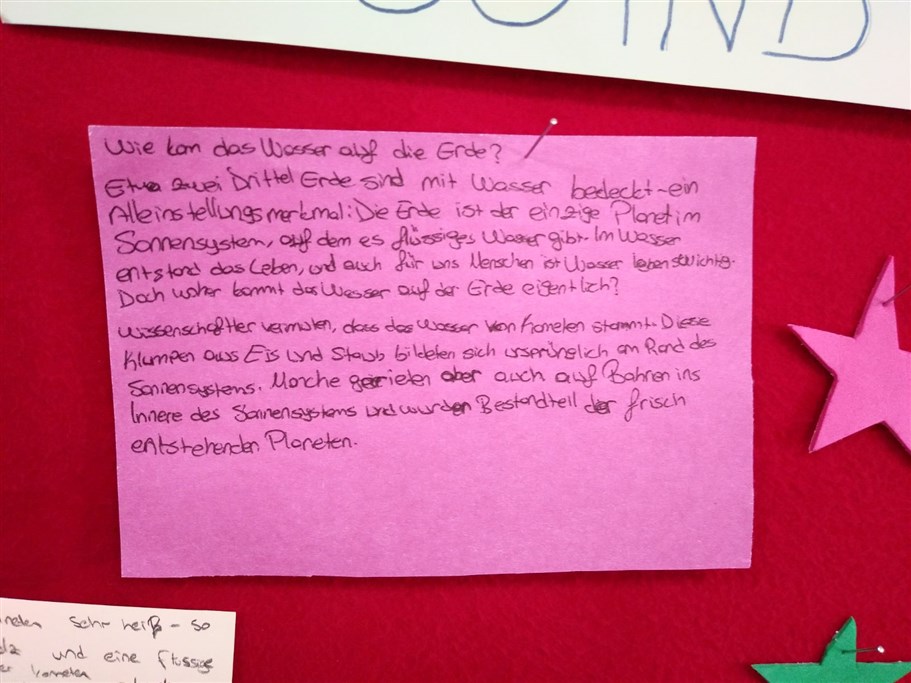 WIND
Wie kam das Wasser auf die Erde?
Etwa zwei Drittel Erde sind mit Wasser bedeckt - ein
Alleinstellungsmerkmal: Die Erde ist der einzige Planet im
Sonnensystem, auf dem es flüssiges Wasser gibt. Im Wasser
entstand das Leben, und auch für uns Menschen ist Wasser lebenswichtig.
Doch woher kommt das Wasser auf der Erde eigentlich?
Wissenschaftler vermuten, dass das Wasser von Kometen stammt. Diese
Klumpen aus Eis und Staub bildeten sich ursprünglich am Rand des
Sonnensystems. Manche gerieten aber auch auf Bahnen ins
Innere des Sonnensystems und wurden Bestandteil der frisch
entstehenden Planeten.
sehr heiß - so
und eine flüssige
kometen